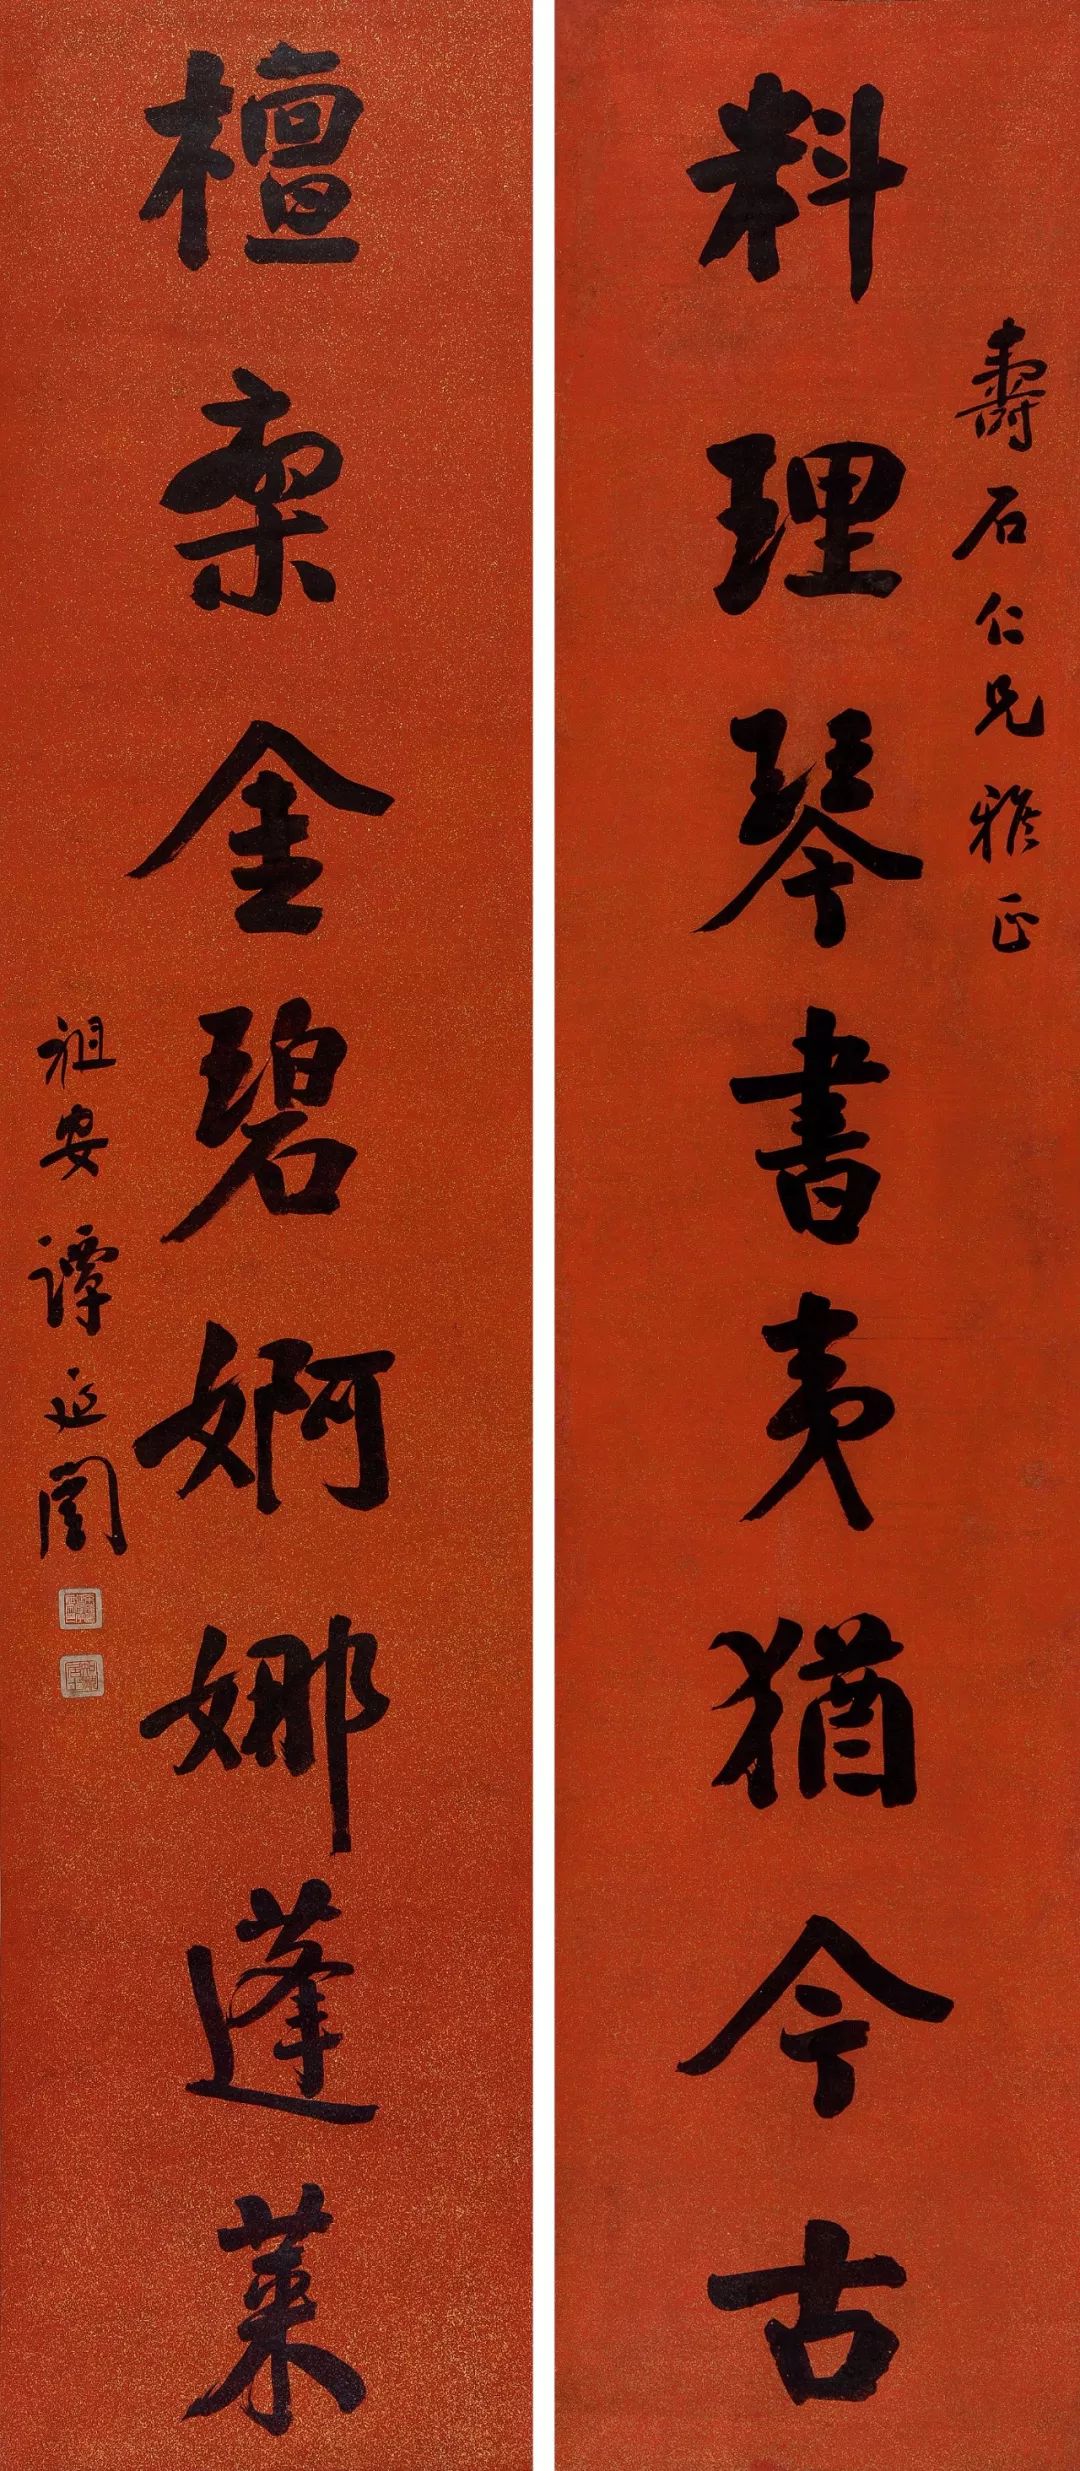 料理琴書夷猶今古
壽石仁兄雅正
檀欒金碧婀娜蓬萊
祖安譚延闓